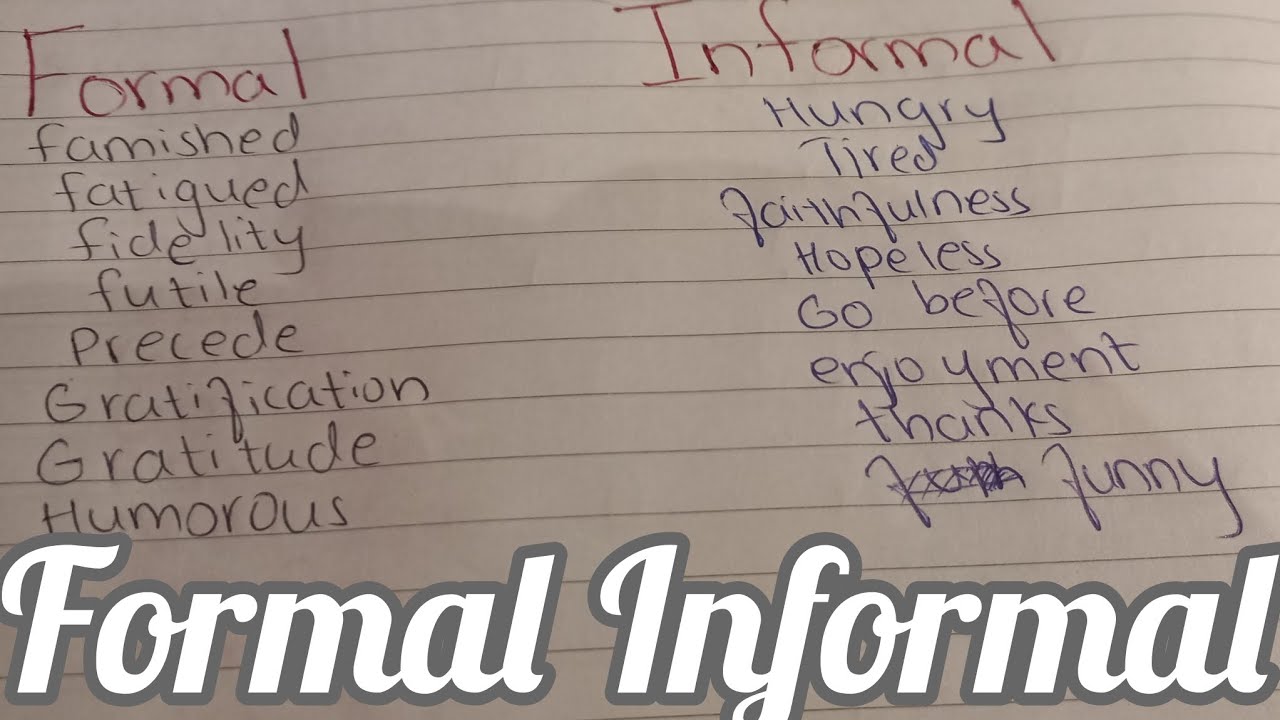 Formal Informal
famished Hungry
fatigued Tired
fidelity faithfulness
futile Hopeless
Precede Go before
Gratification enjoyment
Gratitude thanks
Humorous funny
Formal Informal